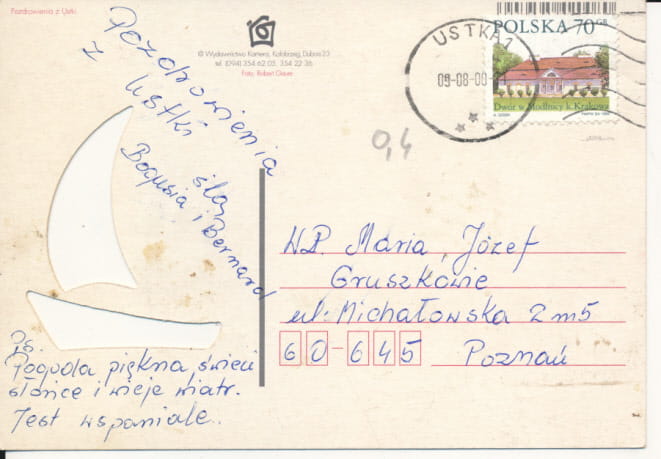 Pozdrowienia z Ustki
© Wydawnictwo Kamera, Kołobrzeg, Dubois 23
tel. (094) 354 62 05, 354 22 36
Foto. Robert Glauer
POLSKA 70 GR
Dwór w Modlnicy k. Krakowa
USTKA 1
09-08-00
0,4
Pozdrowienia
z Ustki
ślą
Bogusia i Bernard
W.P. Maria, Józef
Gruszkowie
ul. Michałowska 2 m 5
60-645 Poznań
Ps.
Pogoda piękna, świeci
słońce i wieje wiatr.
Jest wspaniale.